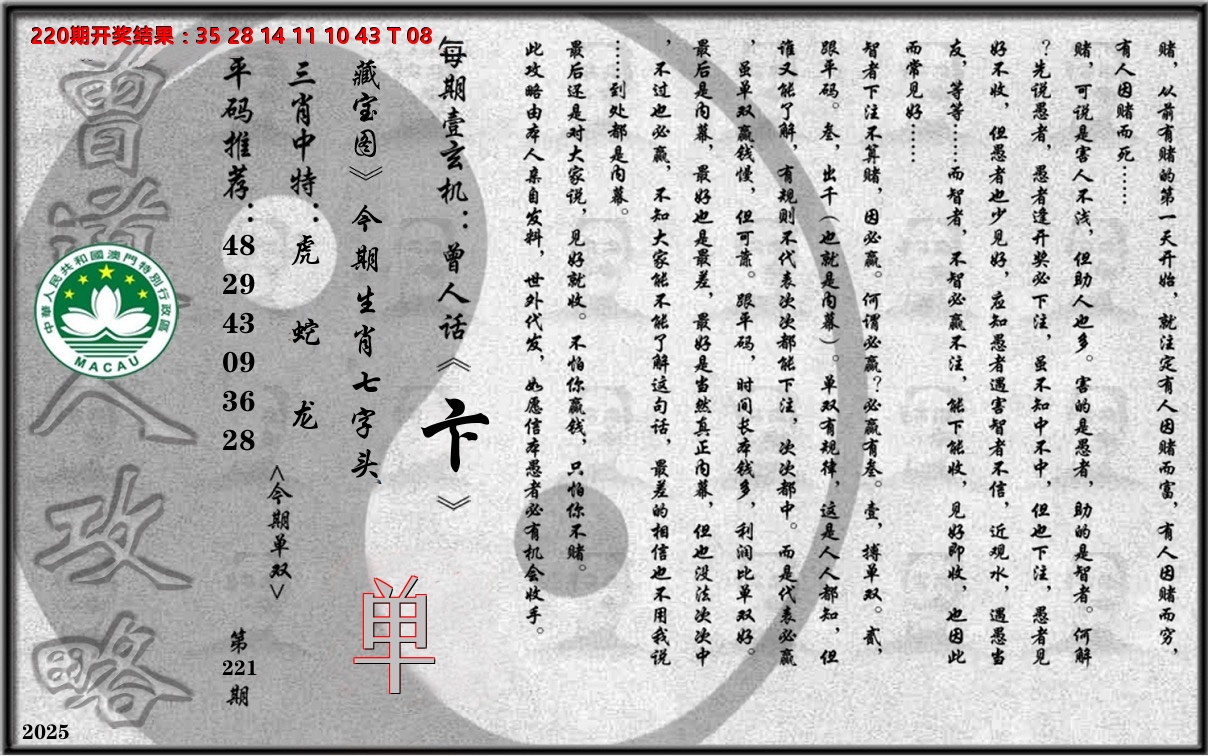 220期开奖结果：35 28 14 11 10 43 T 08
赌，从前有赌的第一天开始，就注定有人因赌而富，有人因赌而穷，
有人因赌而死……
赌，可说是害人不浅，但助人也多。害的是愚者，助的是智者。何解
？先说愚者，愚者逢开奖必下注，虽不知中不中，但也下注，愚者见
好不收，但愚者也少见好，应知愚者遇害智者不信，近观水，遇愚当
友，等等……而智者，不智必赢不注，能下能收，见好即收，也因此
而常见好……
智者下注不算赌，因必赢。何谓必赢？必赢有叁。壹，搏单双。贰，
跟平码。叁，出千（也就是内幕）。单双有规律，这是人人都知，但
谁又能了解，有规则不代表次次都能下注，次次都中。而是代表必赢
，虽单双赢钱慢，但可靠。跟平码，时间长本钱多，利润比单双好。
最后是内幕，最好也是最差，最好是当然真正内幕，但也没法次次中
，不过也必赢，不知大家能不能了解这句话，最差的相信也不用我说
……到处都是内幕。
最后还是对大家说，见好就收。不怕你赢钱，只怕你不赌。
此攻略由本人亲自发料，世外代发，如愿信本愚者必有机会收手。
每期壹玄机：曾人话《卞》
藏宝图》今期生肖七字头
单
三肖中特：虎 蛇 龙
<今期单双>
平码推荐：48 29 43 09 36 28
第221期
曾道人攻略
中華人民共和國澳門特別行政區
MACAU
2025